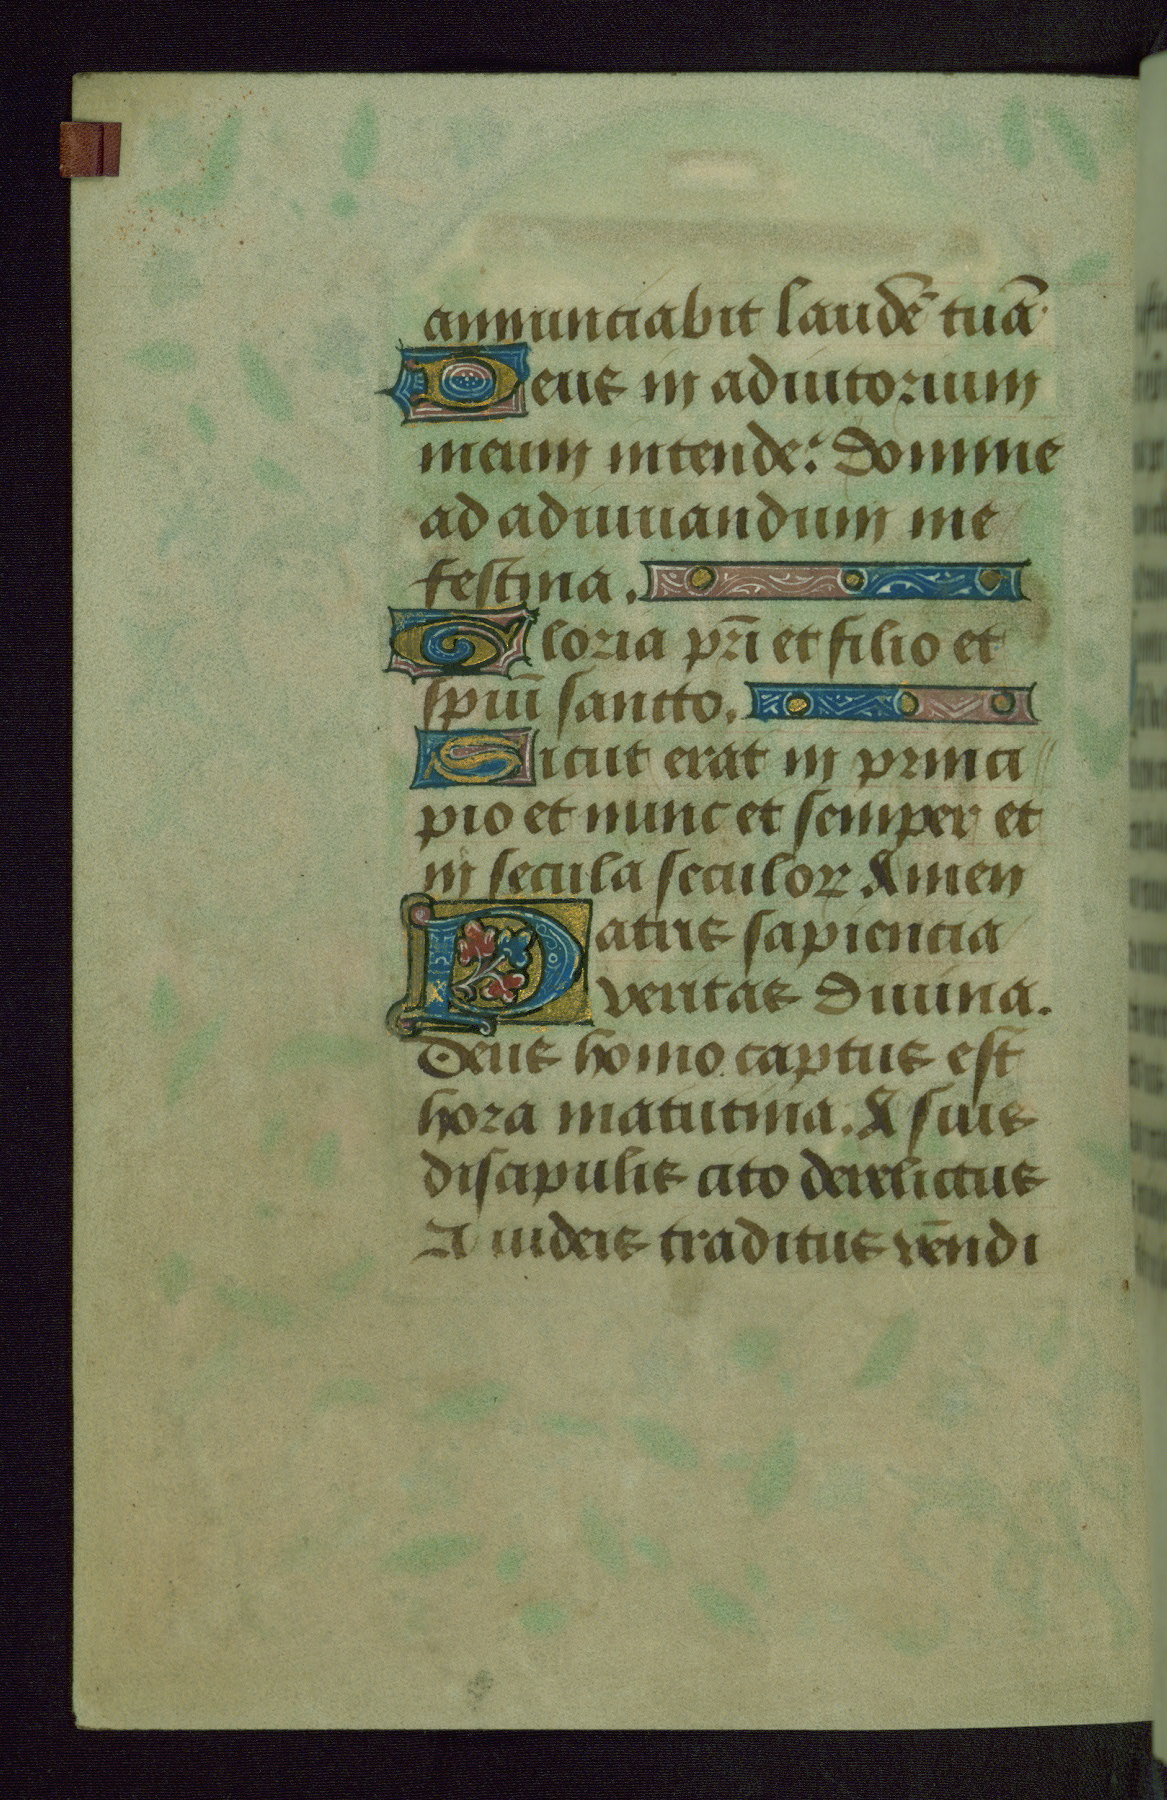 annunciabit laudē tuā
Deus in adiutorium
meum intende: Domine
ad adiuuandum me
festina.
Gloria pr̄i et filio et
spūi sancto.
Sicut erat in princi
pio et nunc et semper et
in secula seculoꝝ Amen
Patris sapiencia
veritas diuina.
Deus homo captus est
hora matutina. A suis
discipulis cito derelictus
A iudeis traditus vēndi